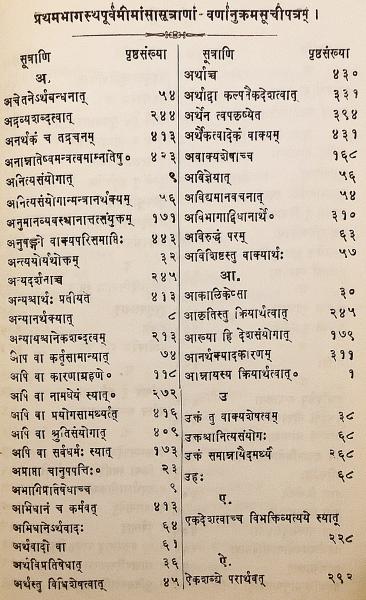 प्रथमभागस्थपूर्वमीमांसासूत्राणां - वर्णानुक्रमसूचीपत्रम् ।
सूत्राणि पृष्ठसंख्या
अ.
अचेतनेऽर्थबन्धनात् ५४
अद्रव्यशब्दत्वात् २४४
अनर्थकं च तद्वचनम् ४१३
अनाम्नातेष्वमन्त्रत्वमाम्नातेषु० ४२३
अनित्यसंयोगात् ९
अनित्यसंयोगान्मन्त्रानर्थक्यम् ५६
अनुमानव्यवस्थानात्तत्संयुक्तम् १७१
अनुषङ्गो वाक्यपरिसमाप्तिः ४४३
अन्त्ययोर्यथोक्तम् ३२
अन्यदर्शनाच्च २४५
अन्यश्चार्थः प्रतीयते ४१३
अन्यानर्थक्यात् ८
अन्यायश्चानेकशब्दत्वम् २१३
अपि वा कर्तृसामान्यात् ७४
अपि वा कारणाग्रहणे० ११८
अपि वा नामधेयं स्यात्० २७२
अपि वा प्रयोगसामर्थ्यात् ४१६
अपि वा श्रुतिसंयोगात् ४०९
अपि वा सर्वधर्मः स्यात् १७३
अप्राप्ता चानुपपत्तिः० २३
अभागिप्रतिषेधाच्च ९
अभिधानं च कर्मवत् ४१३
अभिधानेऽर्थवादः ६४
अर्थवादो वा ६१
अर्थविप्रतिषेधात् ३६
अर्थस्तु विधिशेषत्वात् ४५
सूत्राणि पृष्ठसंख्या
अर्थाच्च ४३०
अर्थाद्वा कल्पनैकदेशत्वात् ३३१
अर्थेन त्वपकृष्येत ३९४
अर्थैकत्वादेकं वाक्यम् ४३१
अवाक्यशेषाच्च १६८
अविज्ञेयात् ५६
अविद्यमानवचनात् ५४
अविभागाद्विधानार्थे० ३१०
अविरुद्धं परम् ६३
अविशिष्टस्तु वाक्यार्थः ५७
आ.
आकालिकेप्सा ३०
आकृतिस्तु क्रियार्थत्वात् २४५
आख्या हि देशसंयोगात् १७९
आनर्थक्यादकारणम् ३११
आम्नायस्य क्रियार्थत्वात्० १
उ
उक्तं तु वाक्यशेषत्वम् ३८
उक्तश्चानित्यसंयोगः ६८
उक्तं समाम्नायैदमर्थ्यं २६८
ऊहः ६८
ए.
एकदेशत्वाच्च विभक्तिव्यत्यये स्यात्
२२८
ऐ.
ऐकशब्द्ये परार्थवत् २९२